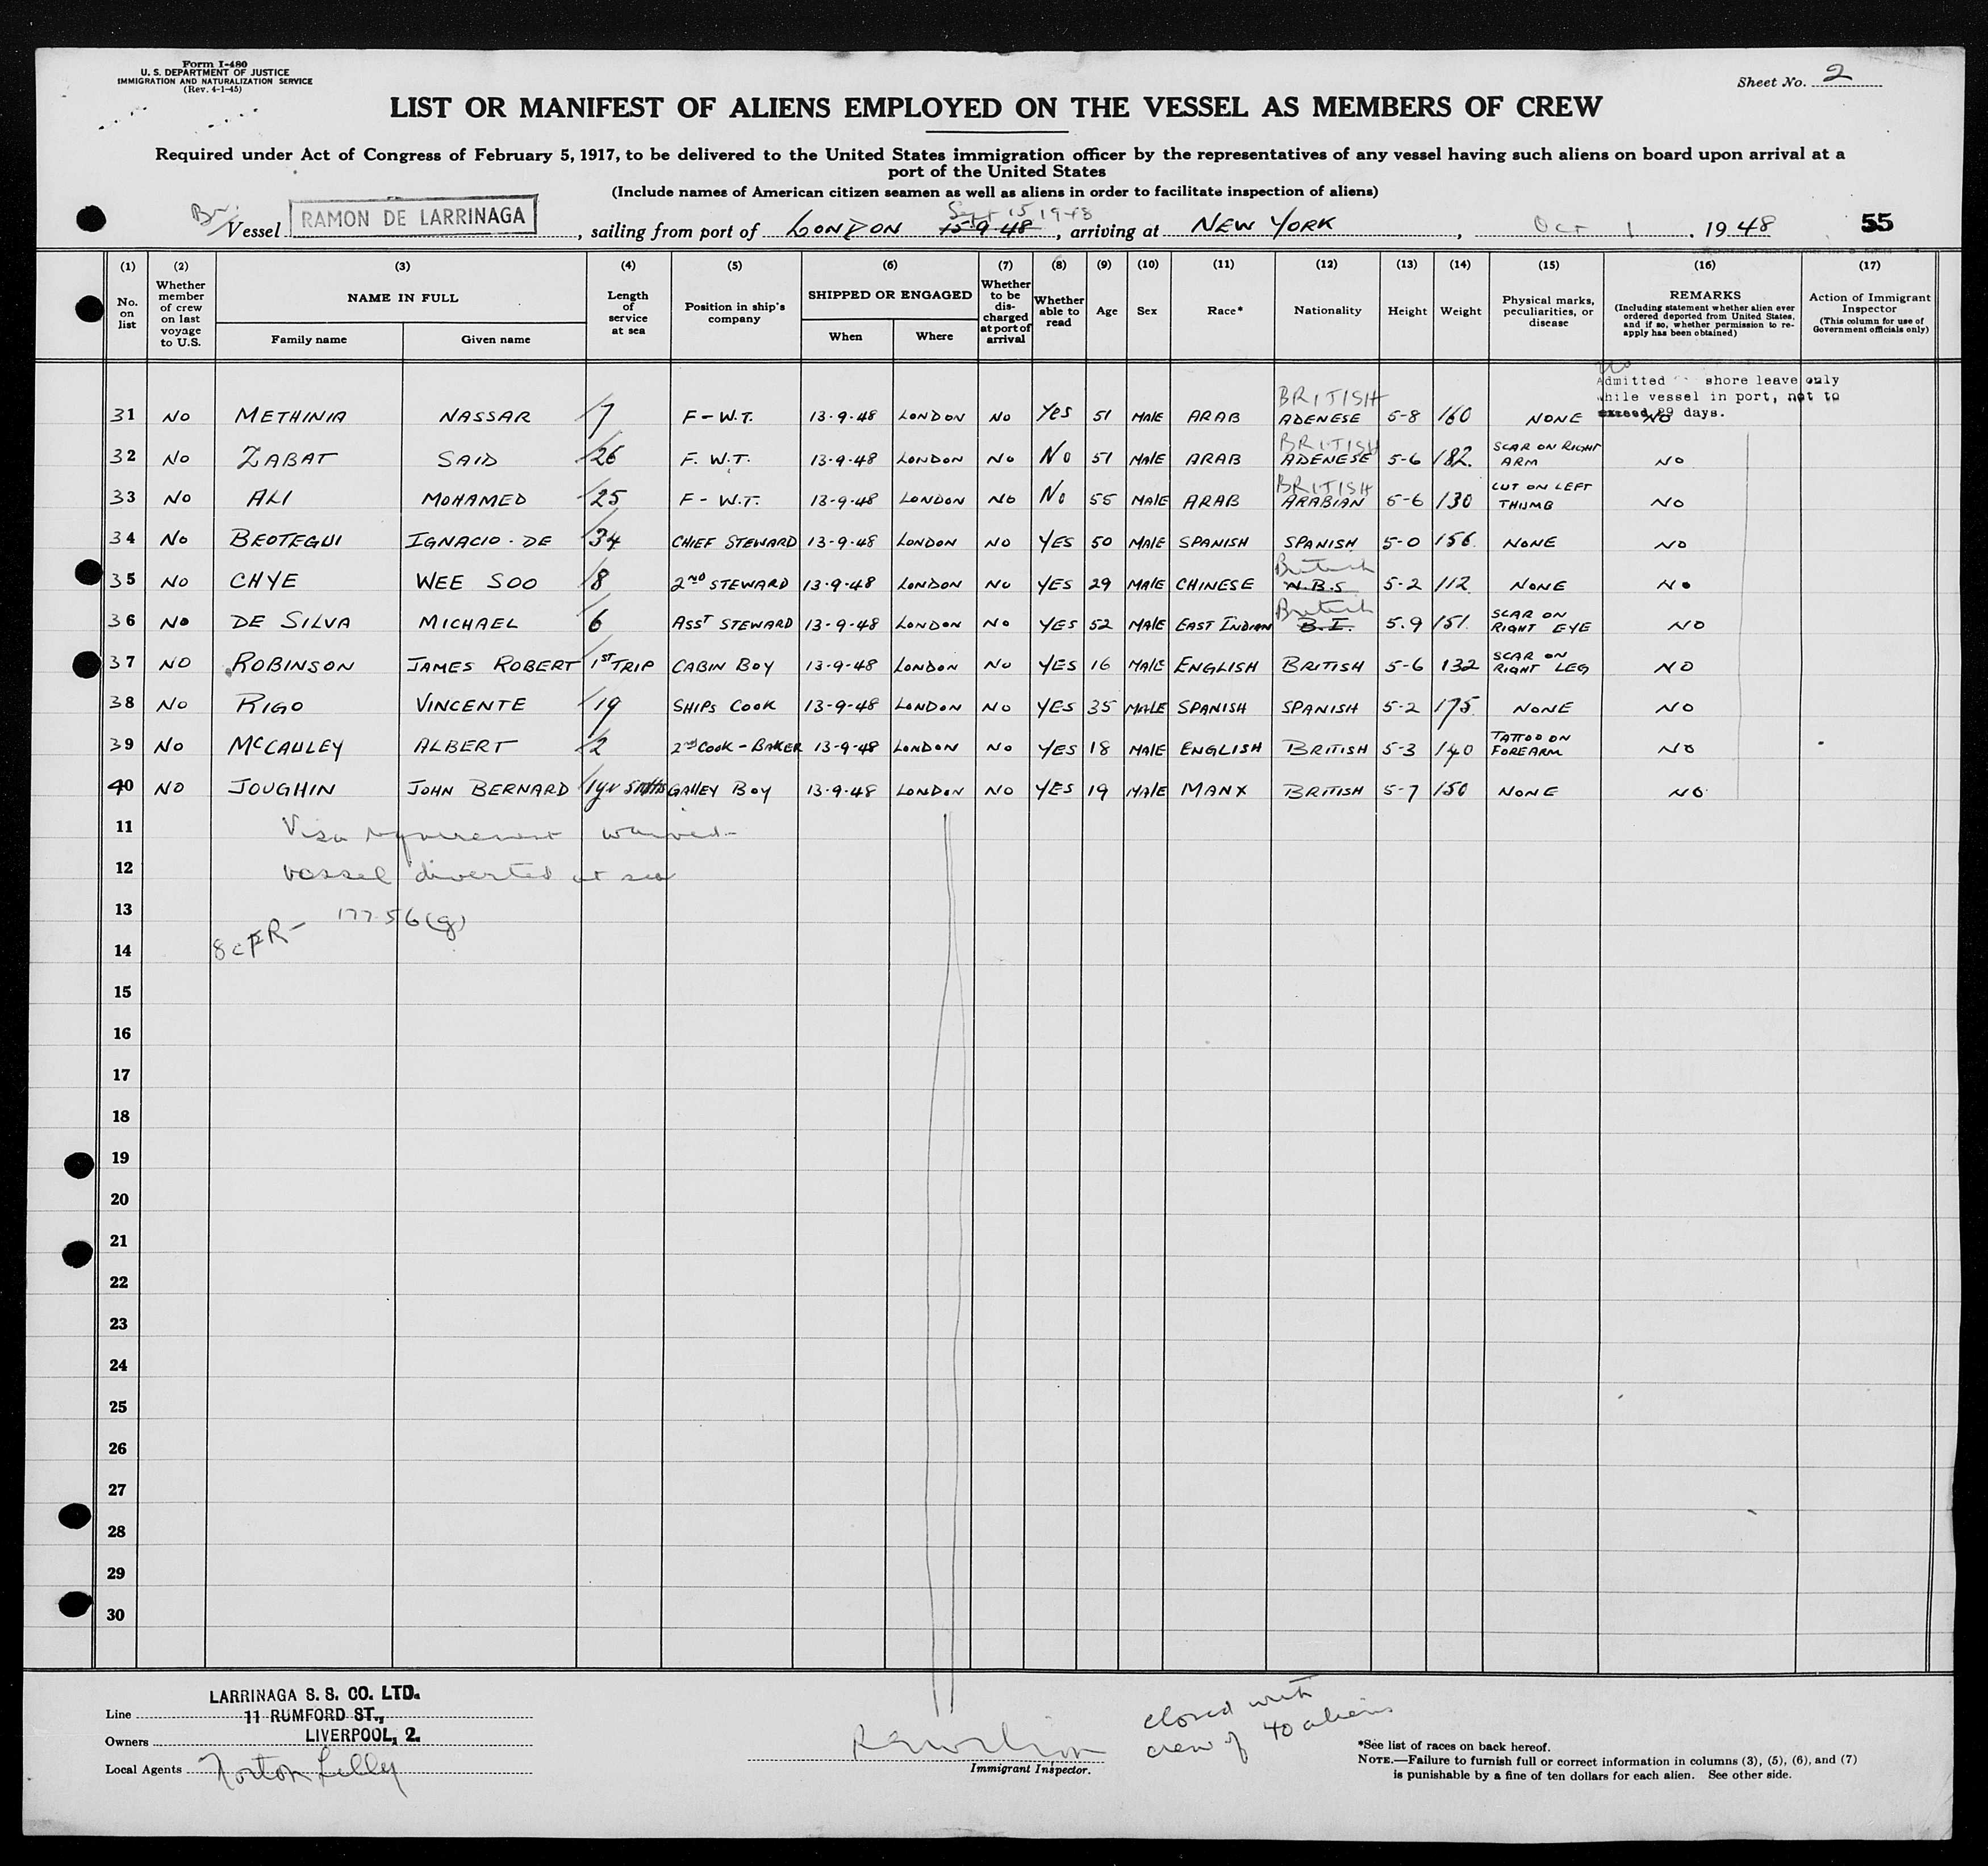 Form I-480
U. S. DEPARTMENT OF JUSTICE
IMMIGRATION AND NATURALIZATION SERVICE
(Rev. 4-1-45)
Sheet No. 2
LIST OR MANIFEST OF ALIENS EMPLOYED ON THE VESSEL AS MEMBERS OF CREW
Required under Act of Congress of February 5, 1917, to be delivered to the United States immigration officer by the representatives of any vessel having such aliens on board upon arrival at a
port of the United States
(Include names of American citizen seamen as well as aliens in order to facilitate inspection of aliens)
Sept 15 1948
Vessel RAMON DE LARRINAGA, sailing from port of LONDON 15-9-48, arriving at NEW YORK, Oct 1, 1948 55
(1) (2) (3) (4) (5) (6) (7) (8) (9) (10) (11) (12) (13) (14) (15) (16) (17)
No. on list
Whether member of crew on last voyage to U.S.
NAME IN FULL
Family name Given name
Length of service at sea
Position in ship's company
SHIPPED OR ENGAGED
When Where
Whether to be discharged at port of arrival
Whether able to read
Age
Sex
Race*
Nationality
Height
Weight
Physical marks, peculiarities, or disease
REMARKS
(Including statement whether alien ever ordered deported from United States, and if so, whether permission to reapply has been obtained)
Action of Immigrant Inspector
(This column for use of Government officials only)
Admitted shore leave only
while vessel in port, not to
exceed 29 days.
BRITISH
31 NO METHINIA NASSAR 7 F-W.T. 13-9-48 LONDON NO YES 51 MALE ARAB ADENESE 5-8 160 NONE NO
BRITISH
32 NO ZABAT SAID 26 F. W.T. 13-9-48 LONDON NO NO 51 MALE ARAB ADENESE 5-6 182 SCAR ON RIGHT ARM NO
BRITISH
33 NO ALI MOHAMED 25 F-W.T. 13-9-48 LONDON NO NO 55 MALE ARAB ARABIAN 5-6 130 CUT ON LEFT THUMB NO
34 NO BEOTEGUI IGNACIO-DE 34 CHIEF STEWARD 13-9-48 LONDON NO YES 50 MALE SPANISH SPANISH 5-0 156 NONE NO
British
35 NO CHYE WEE SOO 8 2ND STEWARD 13-9-48 LONDON NO YES 29 MALE CHINESE N.B.S 5-2 112 NONE NO
British
36 NO DE SILVA MICHAEL 6 ASST STEWARD 13-9-48 LONDON NO YES 52 MALE EAST INDIAN B.I. 5.9 151 SCAR ON RIGHT EYE NO
37 NO ROBINSON JAMES ROBERT 1ST TRIP CABIN BOY 13-9-48 LONDON NO YES 16 MALE ENGLISH BRITISH 5-6 132 SCAR ON RIGHT LEG NO
38 NO RIGO VINCENTE 19 SHIPS COOK 13-9-48 LONDON NO YES 35 MALE SPANISH SPANISH 5-2 175 NONE NO
39 NO MCCAULEY ALBERT 2 2nd COOK-BAKER 13-9-48 LONDON NO YES 18 MALE ENGLISH BRITISH 5-3 140 TATTOO ON FOREARM NO
40 NO JOUGHIN JOHN BERNARD 1yr 5mths GALLEY BOY 13-9-48 LONDON NO YES 19 MALE MANX BRITISH 5-7 150 NONE NO
11 Visa requirement waived-
12 vessel diverted at sea
13 177.56(g)
14 8 CFR-
15
16
17
18
19
20
21
22
23
24
25
26
27
28
29
30
LARRINAGA S. S. CO. LTD.
Line 11 RUMFORD ST.,
Owners LIVERPOOL, 2.
Local Agents Norton Lilly
Immigrant Inspector.
closed with
crew of 40 aliens
*See list of races on back hereof.
NOTE.—Failure to furnish full or correct information in columns (3), (5), (6), and (7)
is punishable by a fine of ten dollars for each alien. See other side.